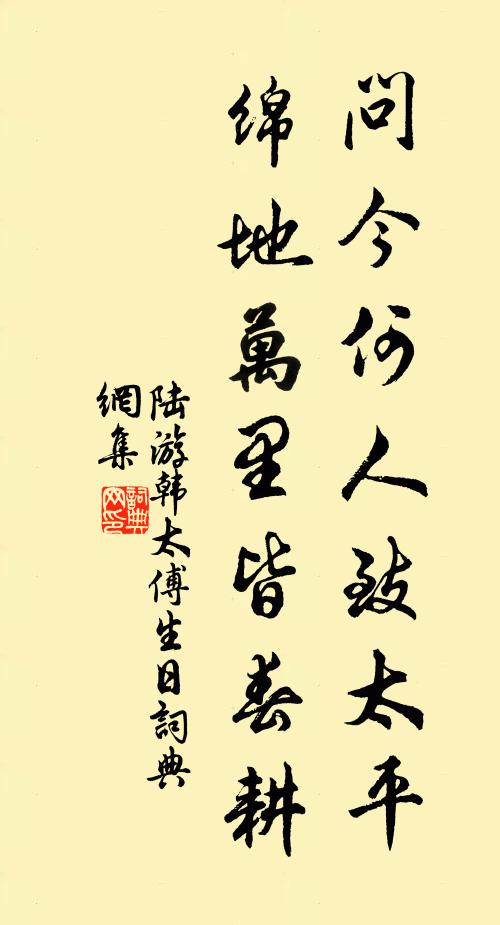 問今何人致太平
綿地萬里皆春耕
陆游韩太傅生日詞典
網集
詞典
网印